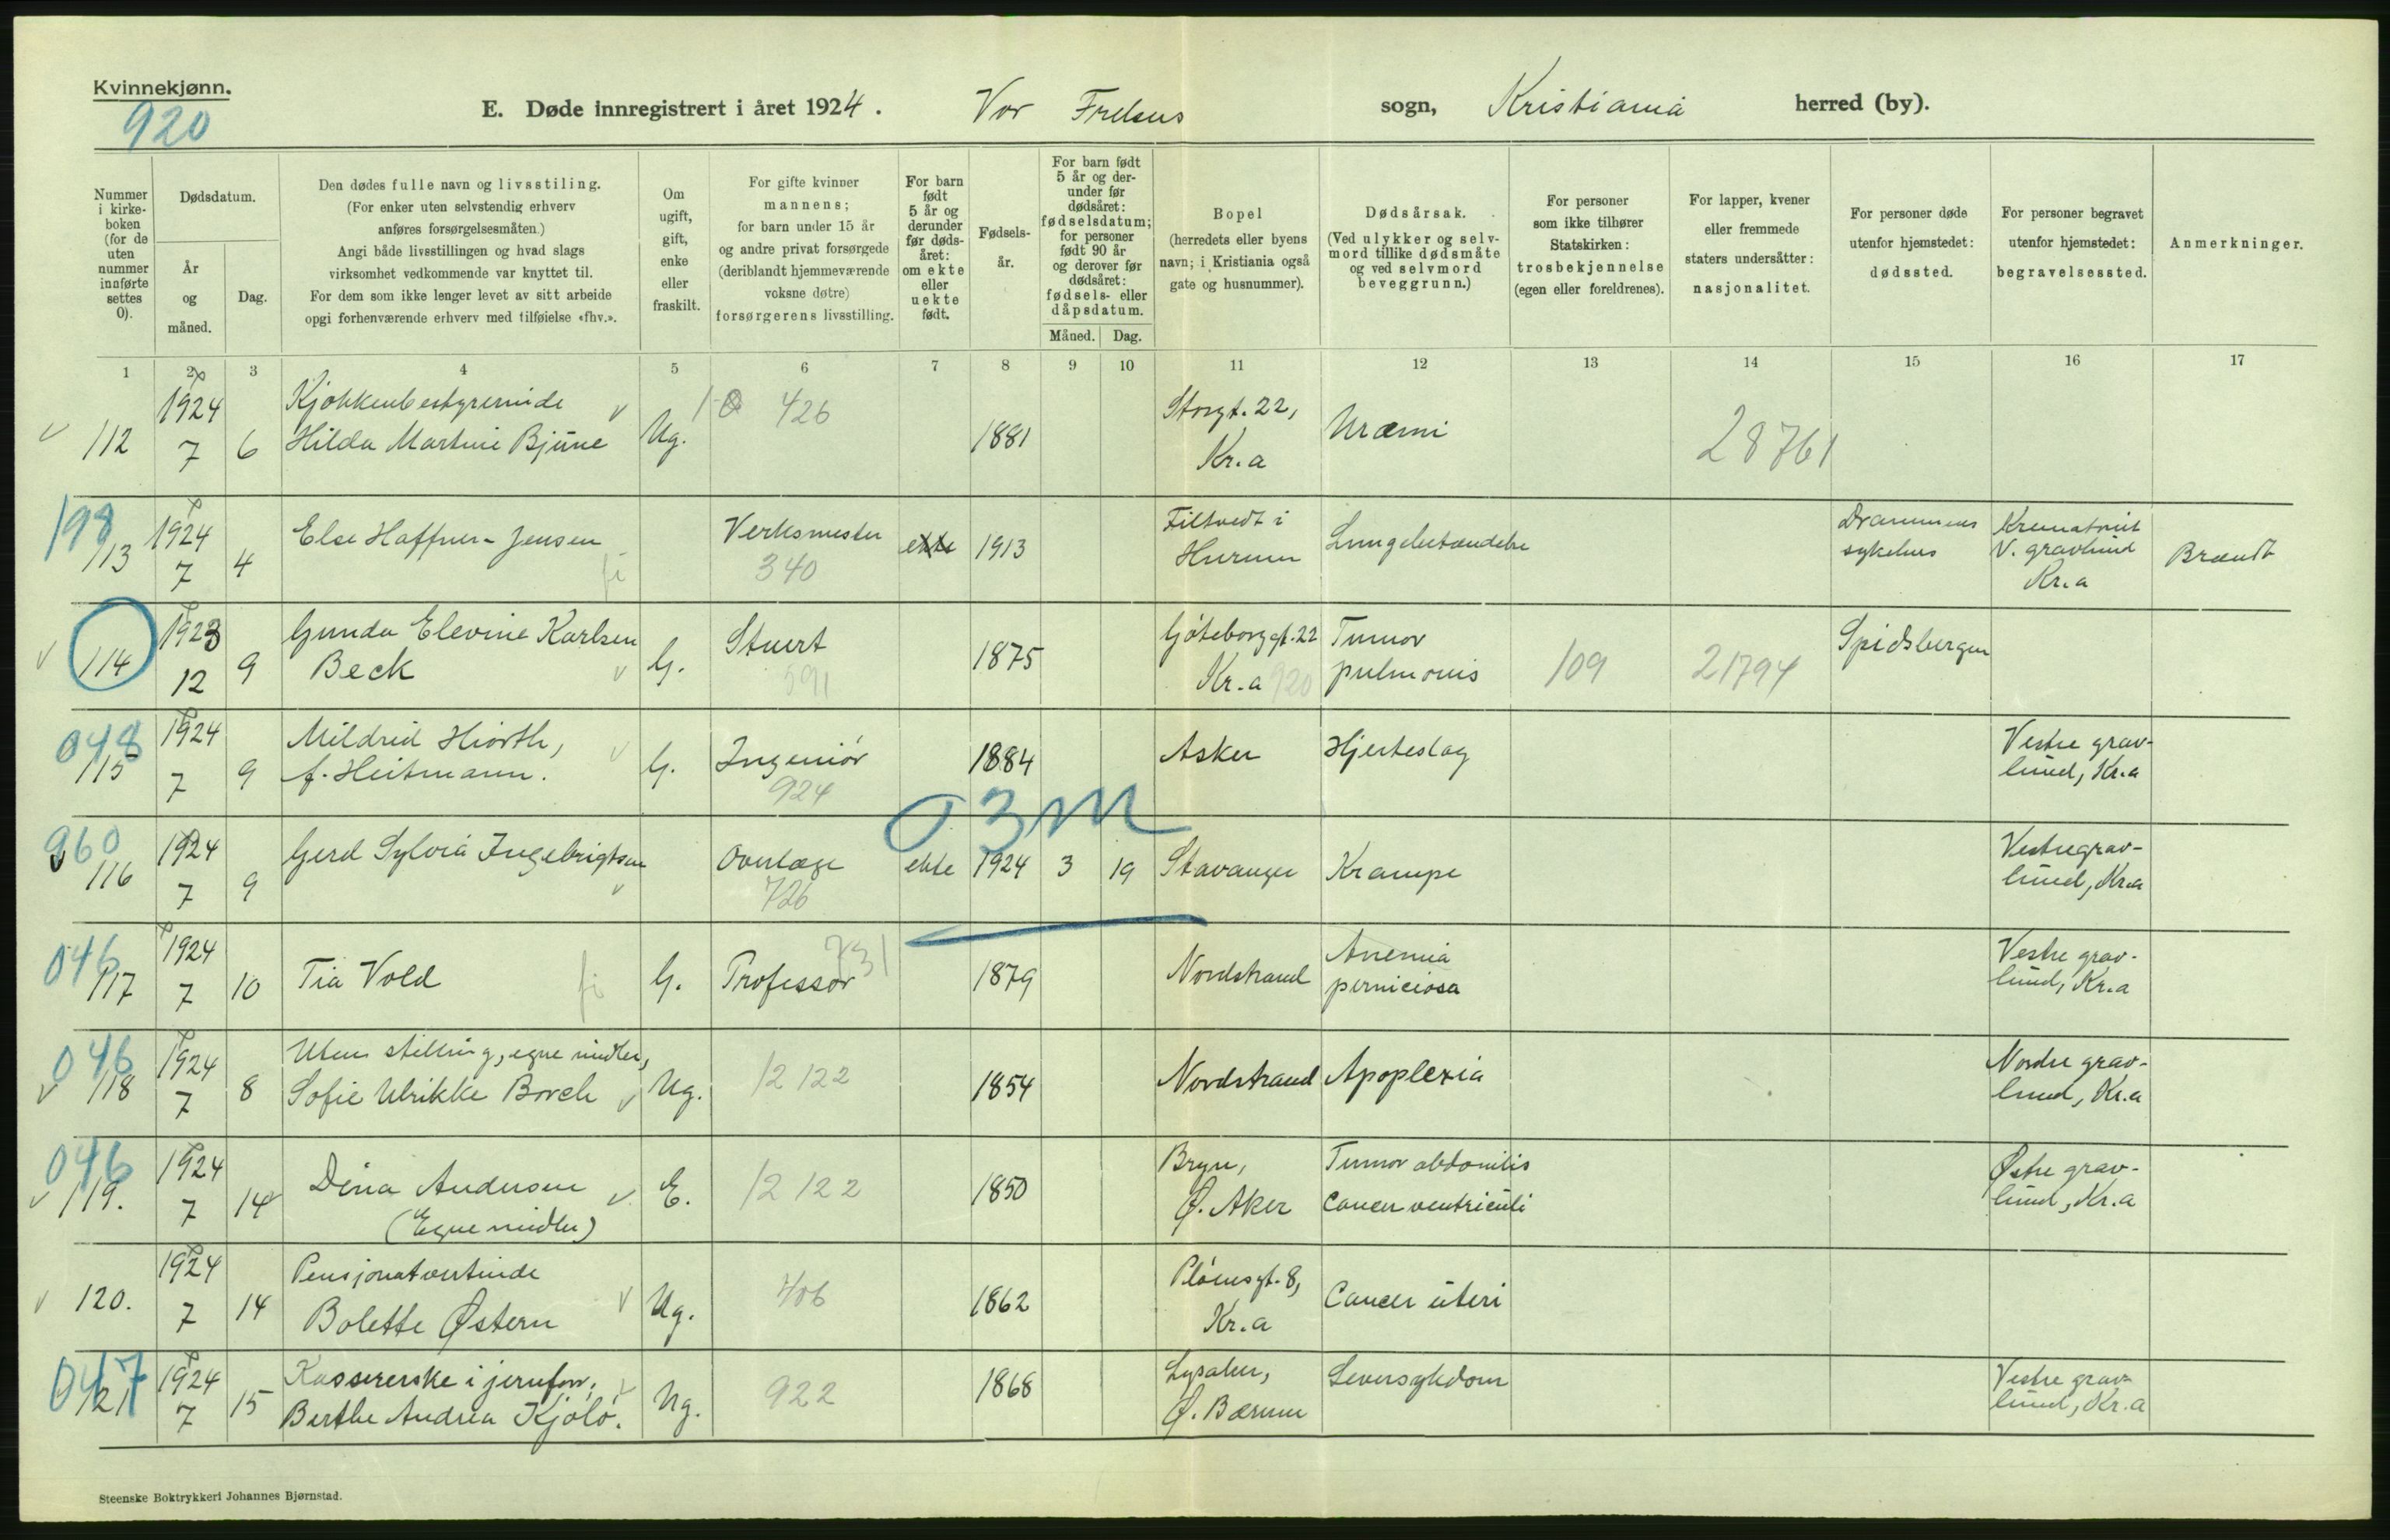 Kvinnekjønn.
920
E. Døde innregistrert i året 1924. Vor Frelsers sogn, Kristiania herred (by).
Nummer i kirke-boken (for de uten nummer innførte settes 0).
Dødsdatum.
År og måned.
Dag.
Den dødes fulle navn og livsstiling.
(For enker uten selvstendig erhverv
anføres forsørgelsesmåten.)
Angi både livsstillingen og hvad slags
virksomhet vedkommende var knyttet til.
For dem som ikke lenger levet av sitt arbeide
opgi forhenværende erhverv med tilføielse «fhv.».
Om ugift, gift, enke eller fraskilt.
For gifte kvinner
mannens;
for barn under 15 år
og andre privat forsørgede
(deriblandt hjemmeværende
voksne døtre)
forsørgerens livsstilling.
For barn født 5 år og derunder før døds-året: om ekte eller uekte født.
Fødsels-år.
For barn født 5 år og der-under før dødsåret: fødselsdatum; for personer født 90 år og derover før dødsåret: fødsels- eller dåpsdatum.
Måned. Dag.
Bopel
(herredets eller byens
navn; i Kristiania også
gate og husnummer).
Dødsårsak.
(Ved ulykker og selv-
mord tillike dødsmåte
og ved selvmord
beveggrunn.)
For personer
som ikke tilhører
Statskirken:
trosbekjennelse
(egen eller foreldrenes).
For lapper, kvener
eller fremmede
staters undersåtter:
nasjonalitet.
For personer døde
utenfor hjemstedet:
dødssted.
For personer begravet
utenfor hjemstedet:
begravelsessted.
Anmerkninger.
1 2 3 4 5 6 7 8 9 10 11 12 13 14 15 16 17
112 1924 7 6 Kjøkkenbestyrerinde
Hilda Martine Bjune Ug. 426 1881 Storgt. 22,
Kr.a Uræmi 28761
198
113 1924 7 4 Else Haffner-Jensen Verksmester 340 ekte 1913 Filtvedt i
Hurum Lungebetændelse Drammens
sykehus Krematoriet
V. gravlund
Kr.a Brandt
114 1923 12 9 Gunda Elevine Karlsen
Beck G. Stuert 591 1875 Göteborggt. 22
Kr.a 920 Tumor
pulmonis 109 21794 Spidsbergen
048
115 1924 7 9 Mildrid Hiorth,
f. Heitmann. G. Ingeniör 924 1884 Asker Hjerteslag Vestre grav-
lund, Kr.a
03m
960
116 1924 7 9 Gerd Sylvia Ingebrigtsen Overlæge 726 ekte 1924 3 19 Stavanger Krampe Vestre grav-
lund, Kr.a
046
117 1924 7 10 Tia Vold G. Professor 731 1879 Nordstrand Anemia
perniciosa Vestre grav-
lund, Kr.a
046
118 1924 7 8 Uten stilling, egne midler,
Sofie Ulrikke Borch Ug. 12 122 1854 Nordstrand Apoplexia Nordre grav-
lund, Kr.a
046
119. 1924 7 14 Dina Andersen
(Egne midler) E. 12 122 1850 Bryn,
Ø. Aker Tumor abdominis
Cancer ventriculi Østre grav-
lund, Kr.a
120. 1924 7 14 Pensjonatvertinde
Bolette Østern Ug. 406 1862 Plöensgt. 8,
Kr.a Cancer uteri
047
121 1924 7 15 Kassererske i jernforr.
Berthe Andrea Kjölö. Ug. 922 1868 Lysaker,
Ø. Bærum Leversykdom Vestre grav-
lund, Kr.a
Steenske Boktrykkeri Johannes Bjørnstad.